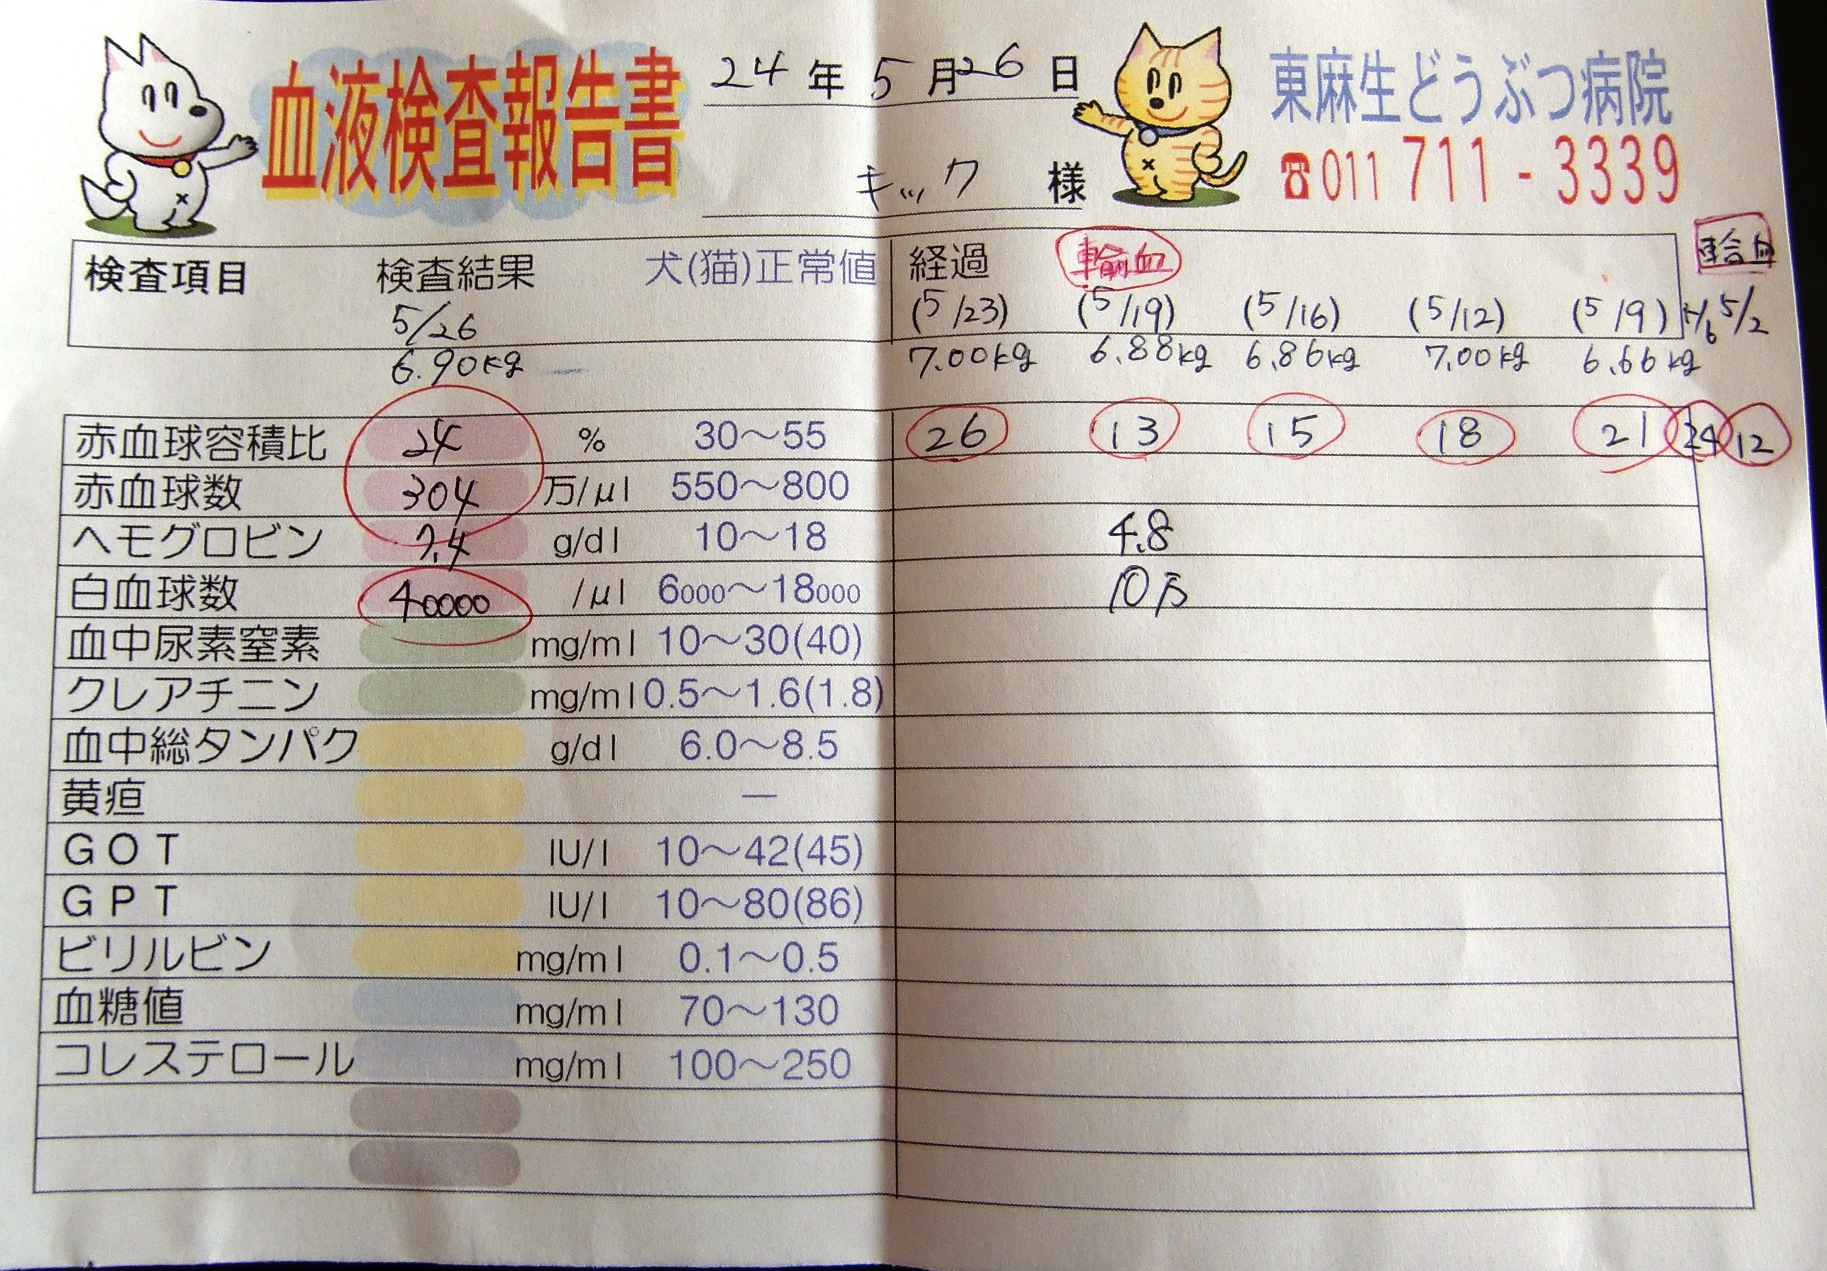 血液検査報告書
24年5月26日
キック 様
東麻生どうぶつ病院
☎011 711-3339
検査項目 検査結果 犬(猫)正常値 経過 輸血 輸血
5/26 (5/23) (5/19) (5/16) (5/12) (5/9) 5/6 5/2
6.90kg 7.00kg 6.88kg 6.86kg 7.00kg 6.66kg
赤血球容積比 24 % 30〜55 26 13 15 18 21 24 12
赤血球数 304 万/μl 550〜800
ヘモグロビン 7.4 g/dl 10〜18 4.8
白血球数 40000 /μl 6000〜18000 10万
血中尿素窒素 mg/ml 10〜30(40)
クレアチニン mg/ml 0.5〜1.6(1.8)
血中総タンパク g/dl 6.0〜8.5
黄疸 —
GOT IU/l 10〜42(45)
GPT IU/l 10〜80(86)
ビリルビン mg/ml 0.1〜0.5
血糖値 mg/ml 70〜130
コレステロール mg/ml 100〜250